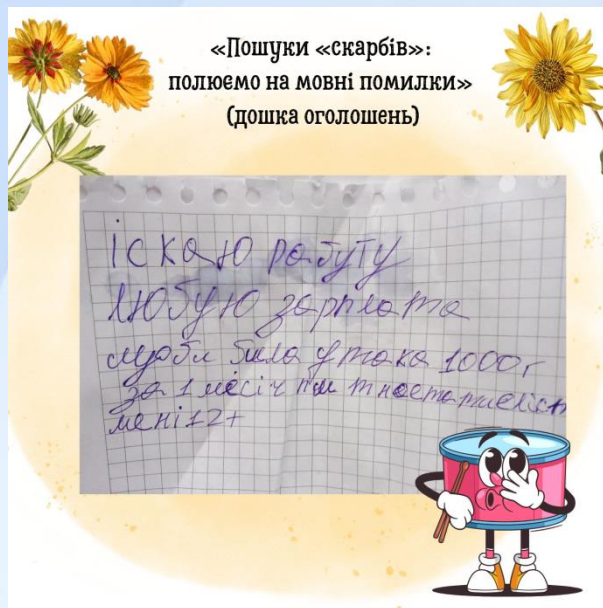 «Пошуки «скарбів»:
полюємо на мовні помилки»
(дошка оголошень)
іскаю работу
любую зарплата
щоби була утака 1000г
за 1 месіч
мені 12+